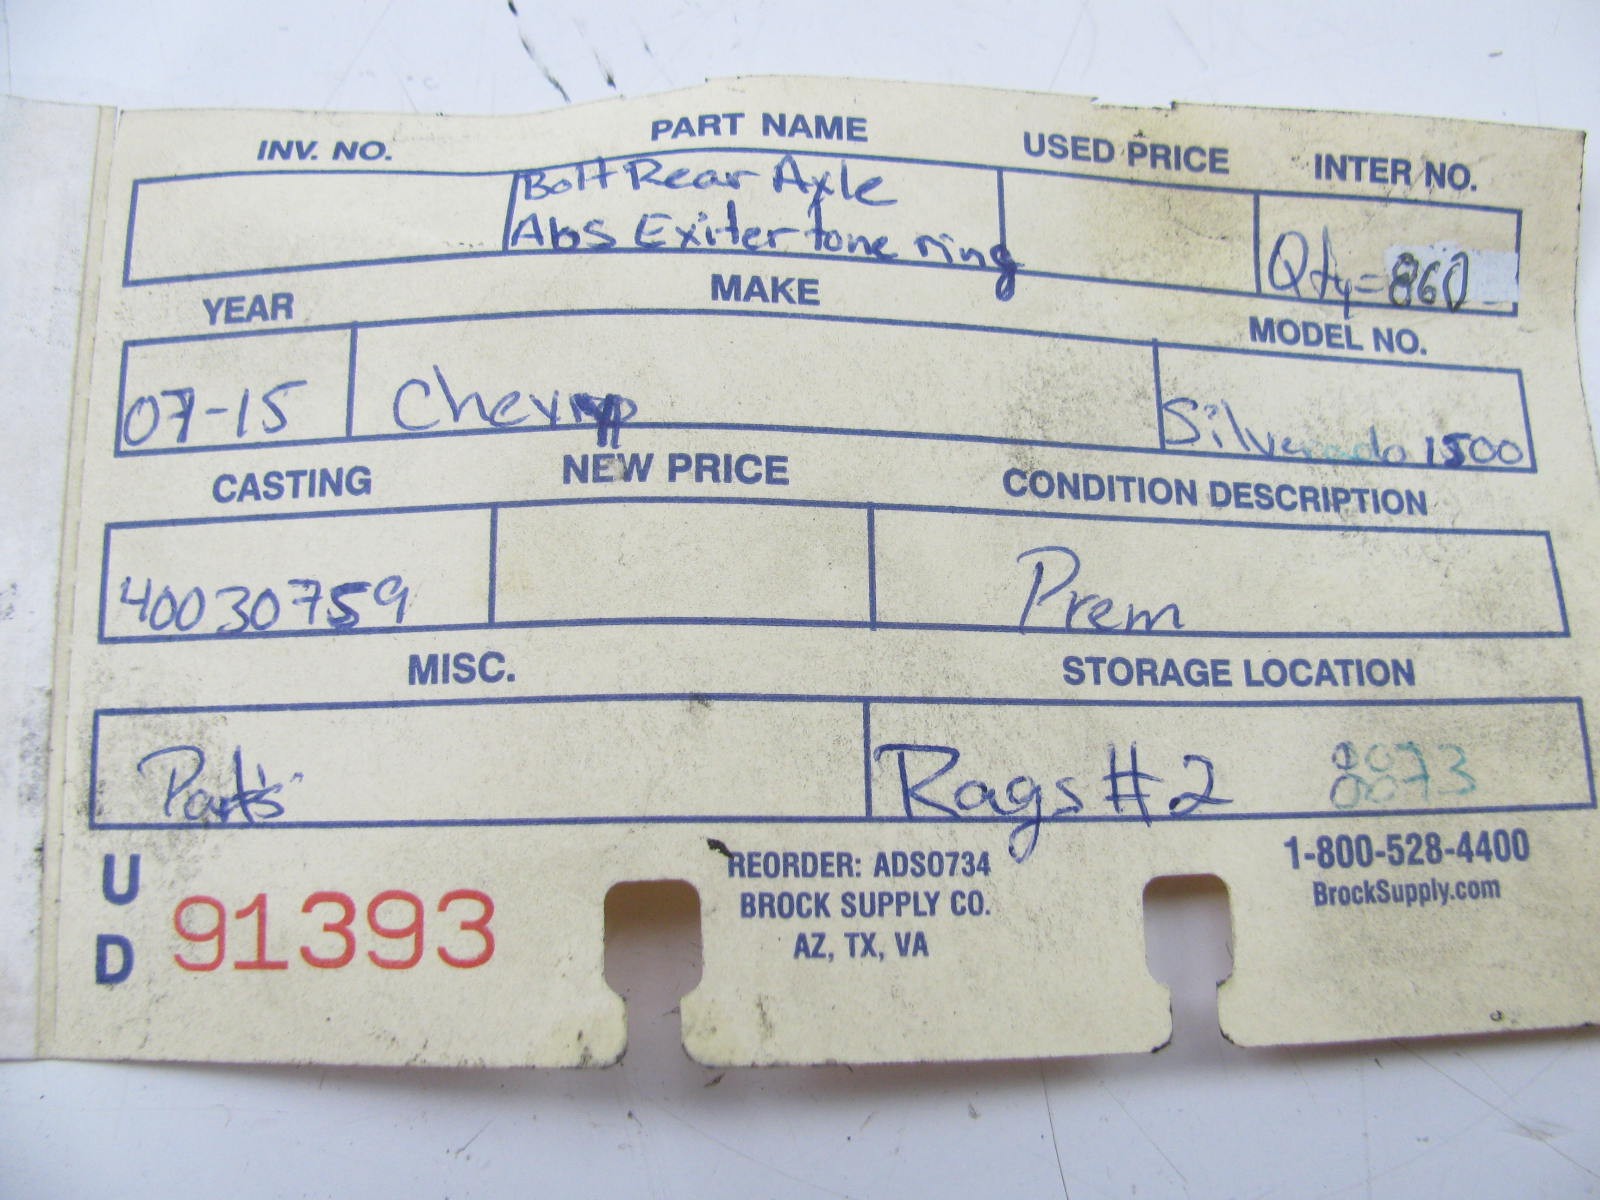 INV. NO. PART NAME USED PRICE INTER NO.
Bolt Rear Axle
Abs Exiter tone ring Qty=860
YEAR MAKE MODEL NO.
07-15 Silverado 1500
CASTING NEW PRICE CONDITION DESCRIPTION
40030759 Prem
MISC. STORAGE LOCATION
Parts Rags #2 0073
U D 91393
REORDER: ADSO734
BROCK SUPPLY CO.
AZ, TX, VA
1-800-528-4400
BrockSupply.com